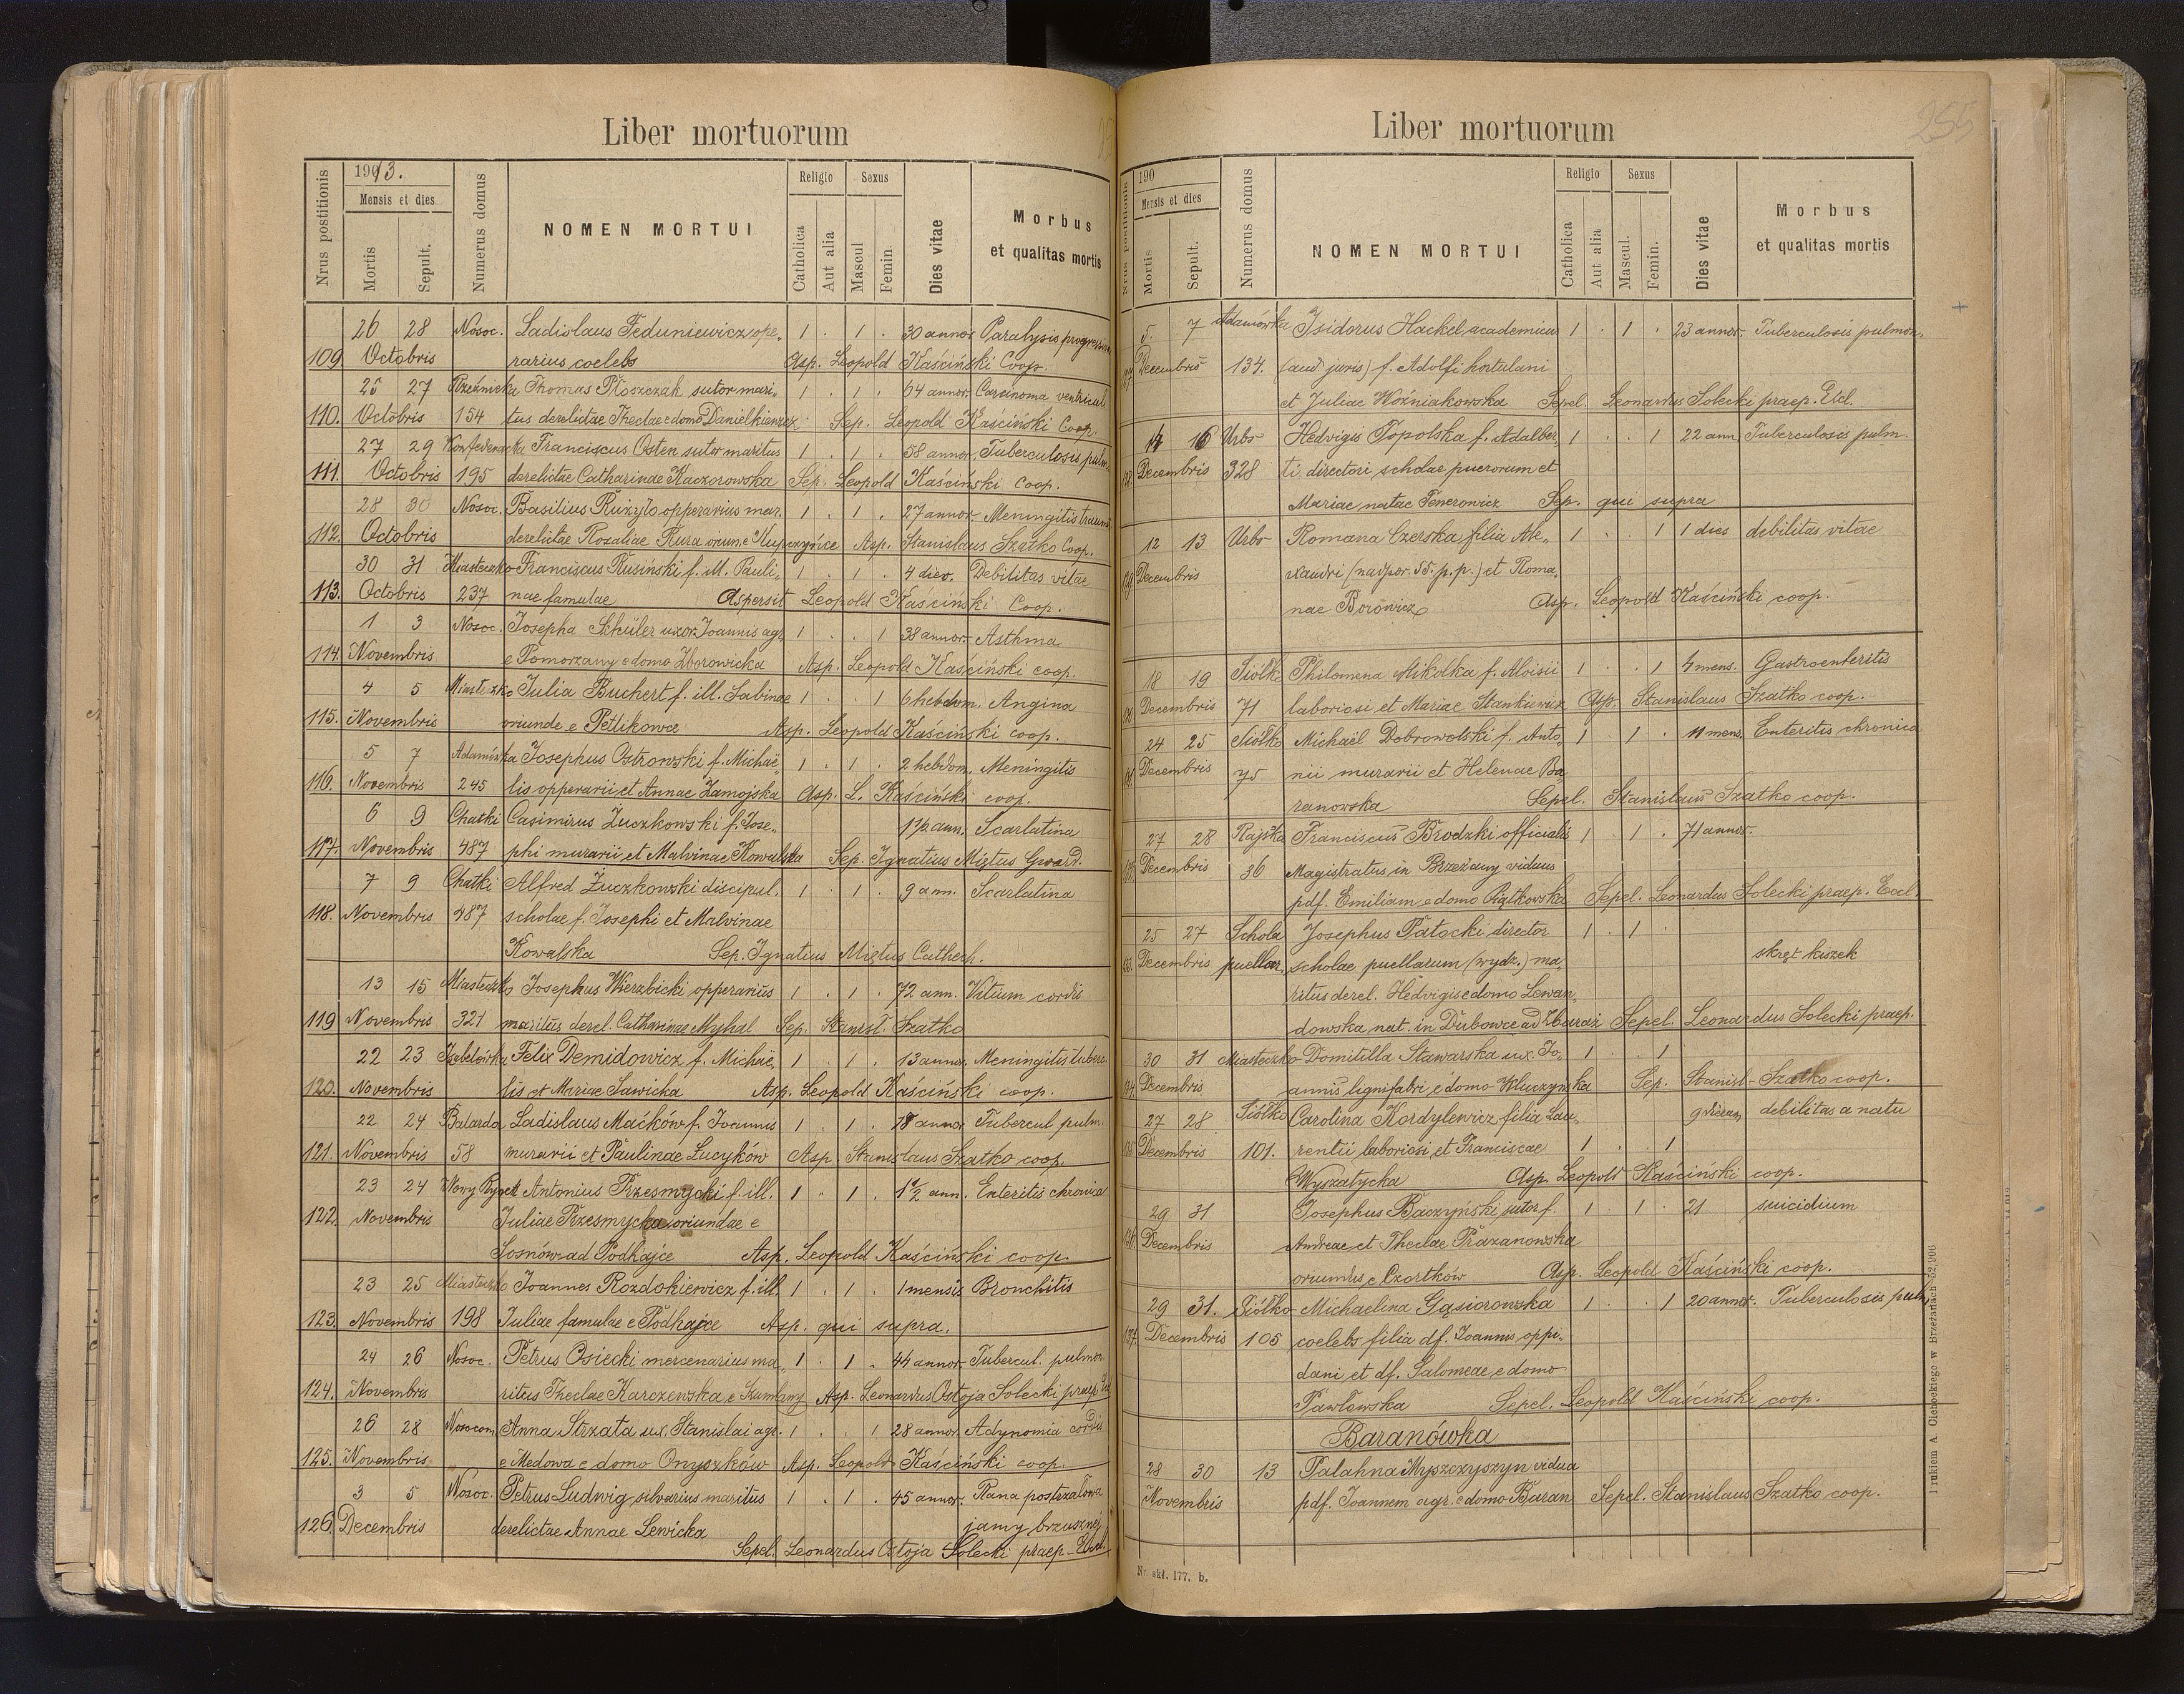 Liber mortuorum
1913.
Nrus postitionis
Mensis et dies
Mortis
Sepult.
Numerus domus
NOMEN MORTUI
Religio
Catholica
Aut alia
Sexus
Mascul
Femin
Dies vitae
Morbus
et qualitas mortis
26 28 Nosoc. Ladislaus Feduniewicz ope- 1 . 1 . 30 annor. Paralysis progressiva
109. Octobris rarius coelebs Asp. Leopold Kaściński Coop.
25 27 Rzeźnicka Thomas Płoszczak sutor mari- 1 . 1 . 64 annor. Carcinoma ventriculi
110. Octobris 154 tus derelictae Theclae e domo Danielkiewicz Sep. Leopold Kaściński Coop.
27 29 Konfederacka Franciscus Osten sutor maritus 1 . 1 . 58 annor. Tuberculosis pulm.
111. Octobris 195 derelictae Catharinae Kaczorowska Sep. Leopold Kaściński Coop.
28 30 Nosoc. Basilius Rużyło opperarius mar. 1 . 1 . 27 annor. Meningitis traum
112. Octobris derelictae Rosaliae Kura oriun. e Kupczyńce Asp. Stanislaus Szatko Coop.
30 31 Miasteczko Franciscus Rusiński f. ill. Pauli- 1 . 1 . 4 dier. Debilitas vitae
113. Octobris 237 nae famulae Aspersit Leopold Kaściński Coop.
1 3 Nosoc. Josepha Schüler uxor Joannis agr. 1 . . 1 38 annor. Asthma
114. Novembris e Pomorzany e domo Zborowicka Asp. Leopold Kaściński coop.
4 5 Miasteczko Julia Buchert f. ill. Sabinae 1 . . 1 6 hebdom. Angina
115. Novembris oriunde e Petlikowce Asp. Leopold Kaściński coop.
5 7 Adamówka Josephus Ostrowski f. Michaë- 1 . 1 . 2 hebdom. Meningitis
116. Novembris 245 lis opperarii et Annae Zamojska Asp. L. Kaściński coop.
6 9 Chatki Casimirus Żuczkowski f. Jose- 1 1/2 ann. Scarlatina
117. Novembris 487 phi murarii et Malvinae Kowalska Sep. Ignatius Miętus Gward.
7 9 Chatki Alfred Żuczkowski discipul. 1 . 1 . 9 ann. Scarlatina
118. Novembris 487 scholae f. Josephi et Malvinae
Kowalska Sep. Ignatius Miętus Cathech.
13 15 Miasteczko Josephus Wierzbicki opperarius 1 . 1 . 72 ann. Vitium cordis
119 Novembris 321 maritus derel. Catharinae Myhal Sep. Stanisł. Szatko
22 23 Isabelówka Felix Demidowicz f. Michaë- 1 . 1 . 13 annor. Meningitis tuberc.
120. Novembris lis et Mariae Sawicka Asp. Leopold Kaściński coop.
22 24 Ladislaus Maćków f. Joannis 1 . 1 . 18 annor. Tubercul pulm.
121. Novembris 58 murarii et Paulinae Lucyków Asp. Stanislaus Szatko coop.
23 24 Nowy Rynek Antonius Przesmycki f. ill. 1 . 1 . 1 1/2 ann. Enteritis chronica
122. Novembris Juliae Przesmycka oriundae e
Sosnów ad Podhajce Asp. Leopold Kaściński coop.
23 25 Miasteczko Joannes Rozdokiewicz f. ill. 1 . 1 . 1 mensis Bronchitis
123. Novembris 198 Juliae famulae e Podhajce Asp. qui supra.
24 26 Nosoc. Petrus Osiecki mercenarius ma- 1 . 1 . 44 annor. Tubercul. pulmon
124. Novembris ritus Theclae Karczewska e Kumlany Asp. Leonardus Ostoja Solecki praep. Eccl
26 28 Nosocom Anna Strzata ux. Stanislai agr. 1 . . 1 28 annor Adynomia cordis
125. Novembris e Medowa e domo Onyszków Asp. Leopold Kaściński coop.
3 5 Nosoc. Petrus Ludwig silvarius maritus 1 . 1 . 45 annor. Rana postrzałowa
126. Decembris derelictae Annae Lewicka jamy brzusznej
Sepel. Leonardus Ostoja Solecki praep. Eccl.
Liber mortuorum
255
190
Nrus positionis
Mensis et dies
Mortis
Sepult.
Numerus domus
NOMEN MORTUI
Religio
Catholica
Aut alia
Sexus
Mascul.
Femin.
Dies vitae
Morbus
et qualitas mortis
5. 7 Adamówka Isidorus Hackel academicus 1 . 1 . 23 annor. Tuberculosis pulmon.
Decembris 134. (aud juris) f. Adolfi hortulani
et Juliae Woźniakowska Sepel. Leonardus Solecki praep. Eccl.
14 16 Urbs Hedvigis Topolska f. Adalber- 1 . . 1 22 ann. Tuberculosis pulm.
Decembris 328 ti directori scholae puerorum et
Mariae natae Fenerowicz Sep. qui supra
12 13 Urbs Romana Czerska filia Ale- 1 . . 1 1 dies debilitas vitae
Decembris xandri (nadpor. 55. p.p.) et Roma-
nae Borowicz Asp. Leopold Kaściński coop.
18 19 Siółko Philomena Mikołka f. Aloisii 1 . . 1 4 mens. Gastroenteritis
Decembris 71 laboriosi et Mariae Stankiewicz Asp. Stanislaus Szatko coop.
24 25 Siółko Michaël Dobrowolski f. Anto- 1 . 1 . 11 mens. Enteritis chronica
Decembris 75 nii murarii et Helenae Ba-
ranowska Sepel. Stanislaus Szatko coop.
27 28 Rajska Franciscus Brodzki officialis 1 . 1 . 71 annor.
Decembris 36 Magistratus in Brzeżany viduus
pdf. Emiliam e domo Piątkowska Sepel. Leonardus Solecki praep. Eccl.
25 27 Schola Josephus Patocki director 1 . 1 .
Decembris puellar. scholae puellarum (wydz.) ma- skręt kiszek
ritus derel. Hedvigis e domo Lewan-
dowska nat. in Dubowce ad Zbaraż Sepel. Leonardus Solecki praep.
30 31 Miasteczko Domitilla Stawarska ux. Jo- 1 . 1
Decembris annis lignifabri e domo Kluczynska Sep. Stanisl. Szatko coop.
27 28 Siółko Carolina Kordylewicz filia Lau- 9 dierum debilitas a natu
Decembris 101. rentii laboriosi et Franciscae 1 . 1
Wyszatycka Asp. Leopold Kaściński coop.
29 31 Josephus Baczyński sutor f. 1 . 1 . 21 suicidium
Decembris Andreae et Theclae Prazanowska
oriundus e Czortków Asp. Leopold Kaściński coop.
29 31. Siółko Michaelina Gąsiorowska 1 . . 1 20 annor. Tuberculosis pulm
Decembris 105 coelebs filia df. Joannis oppi-
dani et df. Salomeae e domo
Pawłowska Sepel. Leopold Kaściński coop.
Baranówka
28 30 13 Palahna Myszczyszyn vidua
Novembris pdf. Joannem agr. e domo Baran Sepel. Stanislaus Szatko coop.
Nr. skł. 177. b.